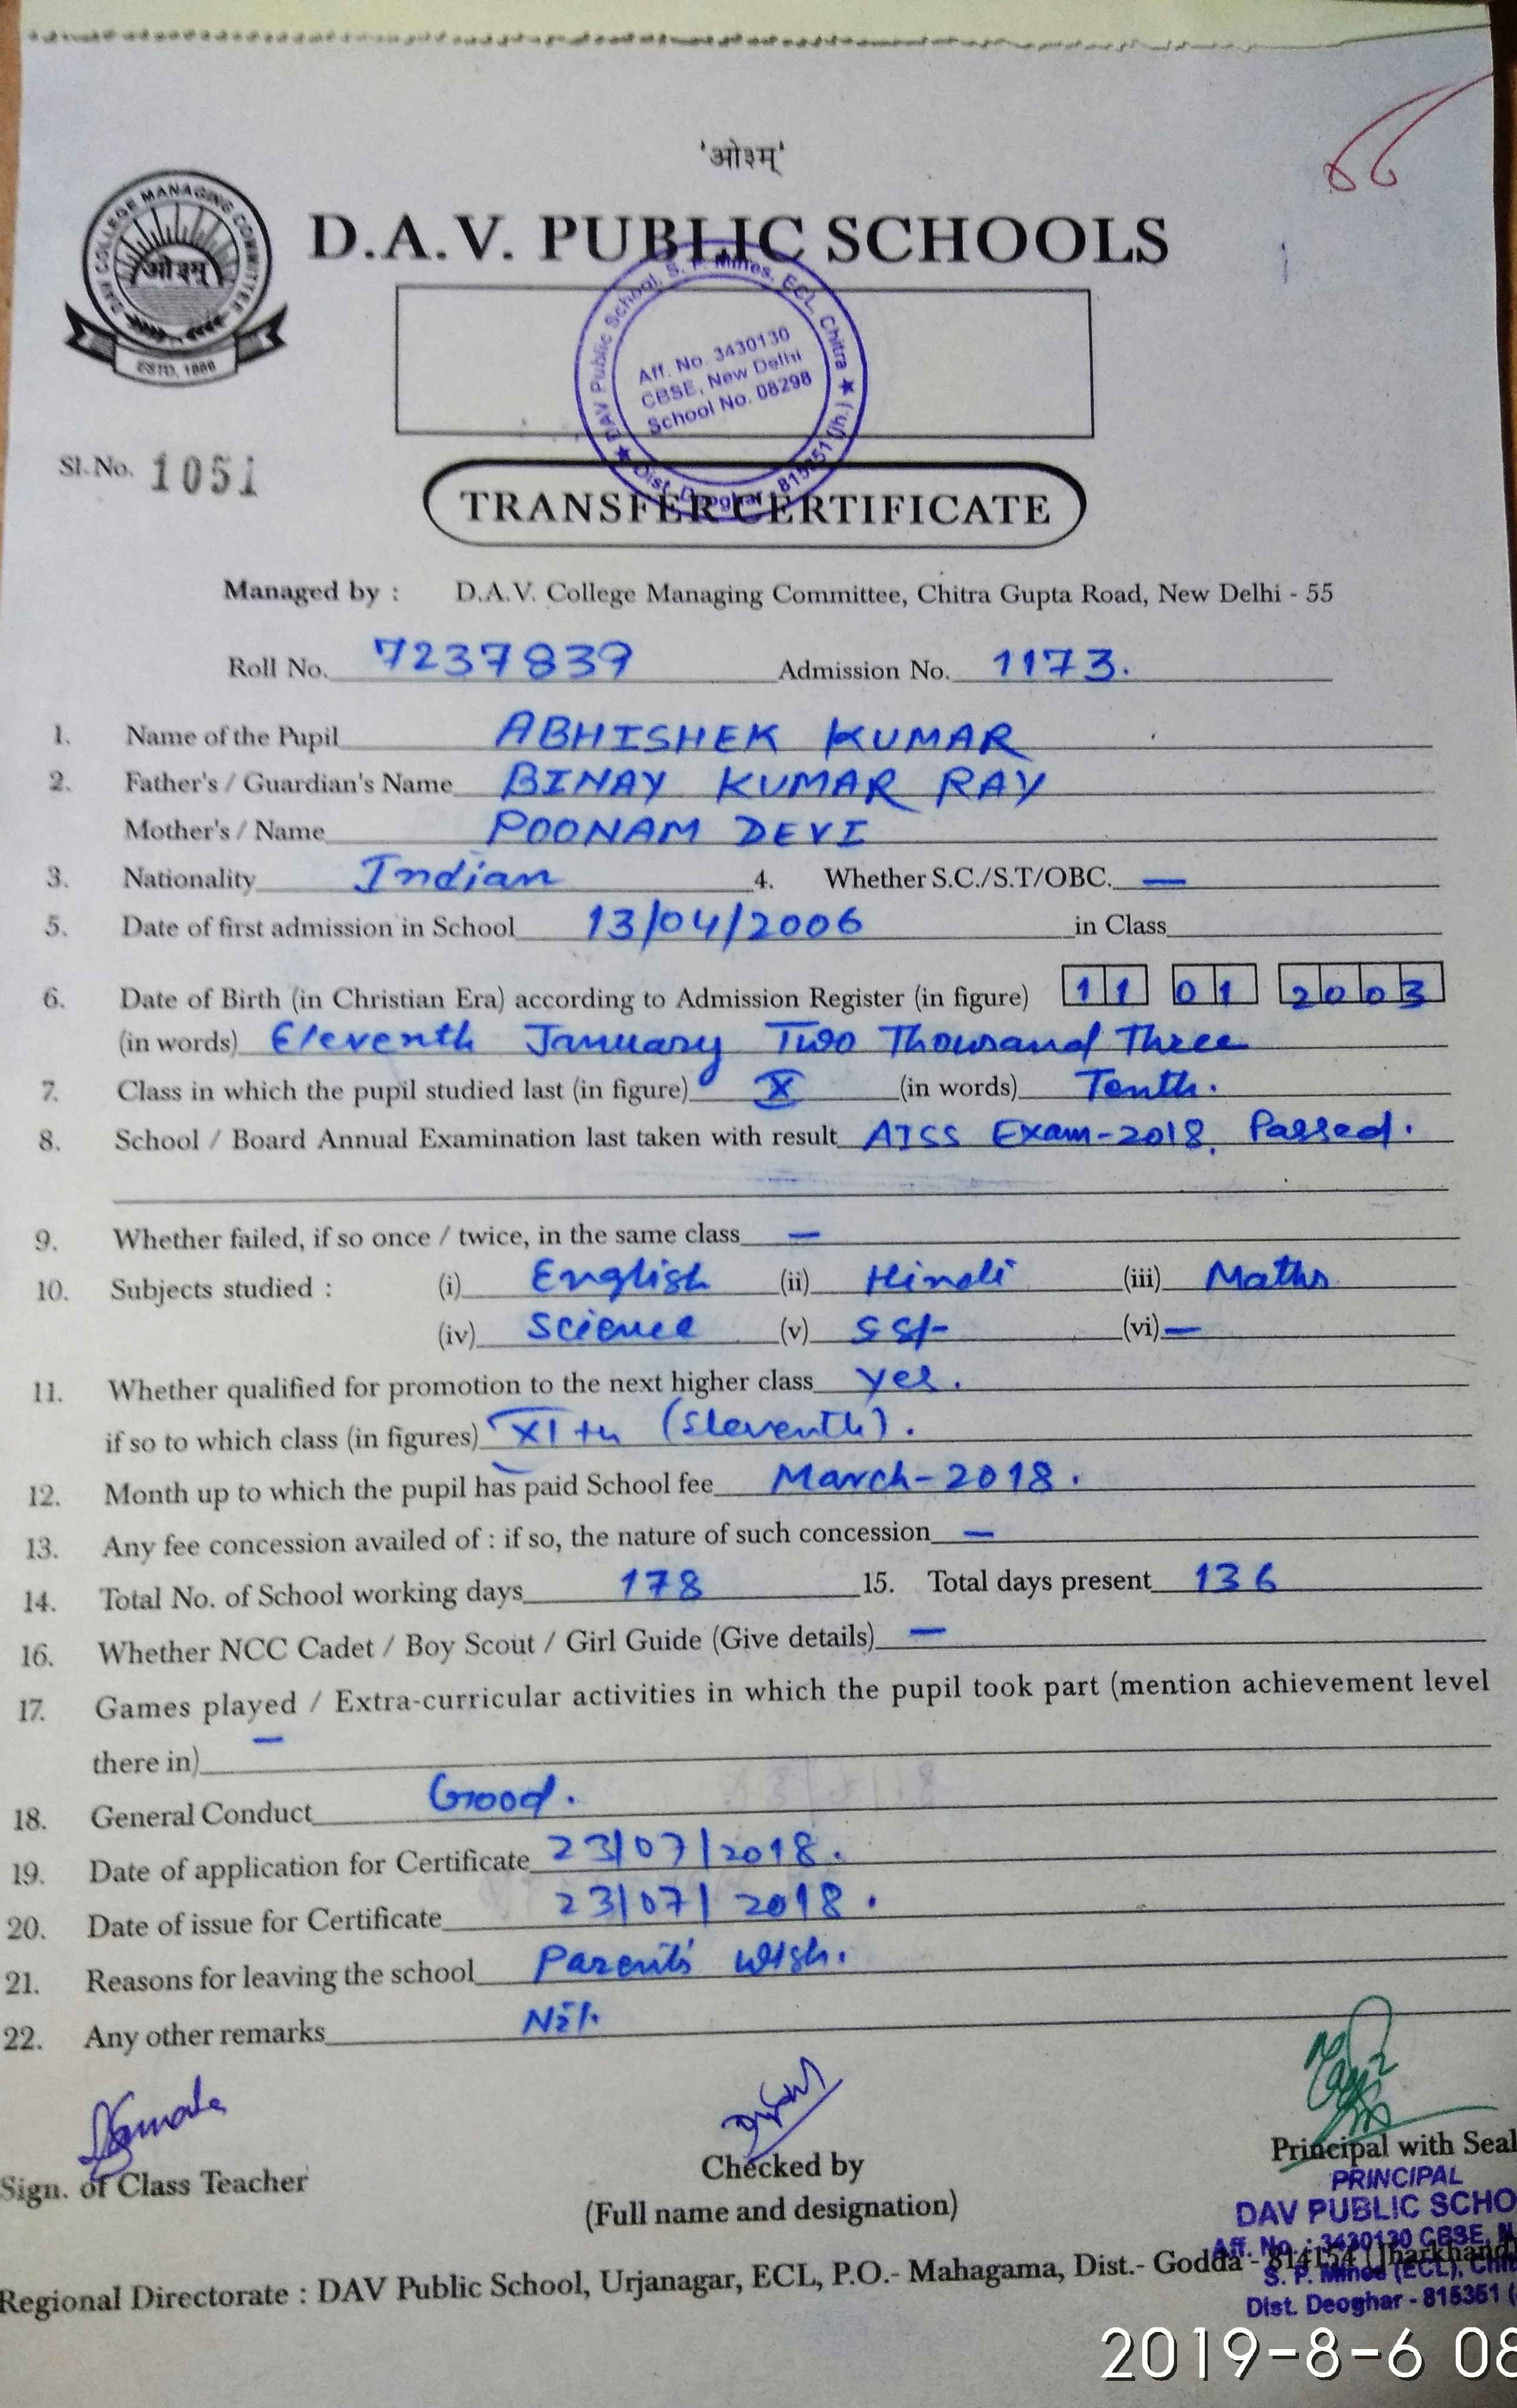 'ओ३म्'
D.A.V. PUBLIC SCHOOLS
DAV COLLEGE MANAGING COMMITTEE
ओ३म्
ESTD. 1886
DAV Public School, S. P. Mines, ECL, Chitra ★ (Jh.)
★ Dist. Deoghar - 815351
Aff. No. 3430130
CBSE, New Delhi
School No. 08298
Sl. No. 1051
TRANSFER CERTIFICATE
Managed by : D.A.V. College Managing Committee, Chitra Gupta Road, New Delhi - 55
Roll No. 7237839 Admission No. 1173.
1. Name of the Pupil ABHISHEK KUMAR
2. Father's / Guardian's Name BINAY KUMAR RAY
Mother's / Name POONAM DEVI
3. Nationality Indian 4. Whether S.C./S.T/OBC. —
5. Date of first admission in School 13/04/2006 in Class
6. Date of Birth (in Christian Era) according to Admission Register (in figure) 11 01 2003
(in words) Eleventh January Two Thousand Three
7. Class in which the pupil studied last (in figure) X (in words) Tenth.
8. School / Board Annual Examination last taken with result AISS Exam-2018, Passed.
9. Whether failed, if so once / twice, in the same class —
10. Subjects studied : (i) English (ii) Hindi (iii) Maths
(iv) Science (v) SSt (vi) —
11. Whether qualified for promotion to the next higher class yes.
if so to which class (in figures) XIth (Eleventh).
12. Month up to which the pupil has paid School fee March-2018.
13. Any fee concession availed of : if so, the nature of such concession —
14. Total No. of School working days 178 15. Total days present 136
16. Whether NCC Cadet / Boy Scout / Girl Guide (Give details) —
17. Games played / Extra-curricular activities in which the pupil took part (mention achievement level
there in) —
18. General Conduct Good.
19. Date of application for Certificate 23/07/2018.
20. Date of issue for Certificate 23/07/2018.
21. Reasons for leaving the school Parents' wish.
22. Any other remarks Nil.
Sign. of Class Teacher
Checked by
(Full name and designation)
Principal with Seal
PRINCIPAL
DAV PUBLIC SCHO
Aff. No. : 3430130 CBSE, N
S. P. Mines (ECL), Chit
Dist. Deoghar - 815351 (
Regional Directorate : DAV Public School, Urjanagar, ECL, P.O.- Mahagama, Dist.- Godda - 814154 (Jharkhand)
2019-8-6 08